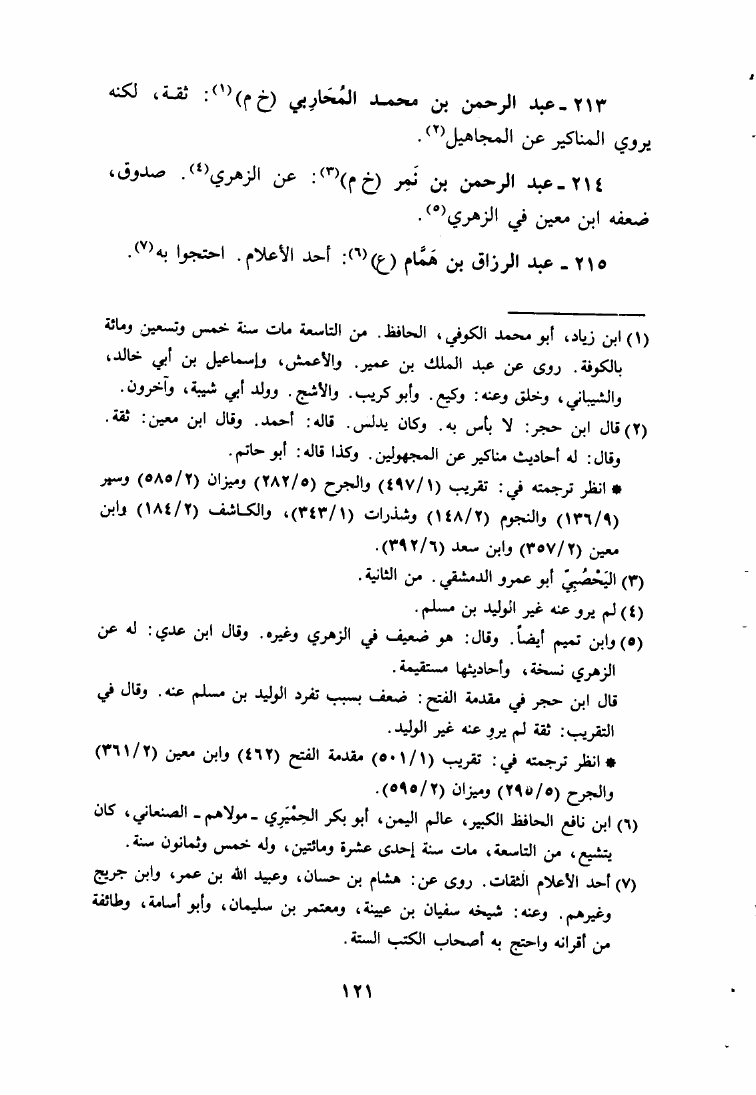 ٢١٣ - عبد الرحمن بن محمد المُحَارِبي (خ م)(١): ثقة، لكنه
يروي المناكير عن المجاهيل(٢).
٢١٤ - عبد الرحمن بن نَمِر (خ م)(٣): عن الزهري(٤). صدوق،
ضعفه ابن معين في الزهري(٥).
٢١٥ - عبد الرزاق بن هَمَّام (ع)(٦): أحد الأعلام. احتجوا به(٧).
(١) ابن زياد، أبو محمد الكوفي، الحافظ. من التاسعة مات سنة خمس وتسعين ومائة
بالكوفة. روى عن عبد الملك بن عمير. والأعمش، وإسماعيل بن أبي خالد،
والشيباني، وخلق وعنه: وكيع. وأبو كريب. والأشج. وولد أبي شيبة، وآخرون.
(٢) قال ابن حجر: لا بأس به. وكان يدلس. قاله: أحمد. وقال ابن معين: ثقة.
وقال: له أحاديث مناكير عن المجهولين. وكذا قاله: أبو حاتم.
* انظر ترجمته في: تقريب (٤٩٧/١) والجرح (٢٨٢/٥) وميزان (٥٨٥/٢) وسير
(١٣٦/٩) والنجوم (١٤٨/٢) وشذرات (٣٤٣/١)، والكاشف (١٨٤/٢) وابن
معين (٣٥٧/٢) وابن سعد (٣٩٢/٦).
(٣) اليَحْصُبِيّ أبو عمرو الدمشقي. من الثانية.
(٤) لم يرو عنه غير الوليد بن مسلم.
(٥) وابن تميم أيضاً. وقال: هو ضعيف في الزهري وغيره. وقال ابن عدي: له عن
الزهري نسخة، وأحاديثها مستقيمة.
قال ابن حجر في مقدمة الفتح: ضعف بسبب تفرد الوليد بن مسلم عنه. وقال في
التقريب: ثقة لم يروِ عنه غير الوليد.
* انظر ترجمته في: تقريب (٥٠١/١) مقدمة الفتح (٤٦٢) وابن معين (٣٦١/٢)
والجرح (٢٩٥/٥) وميزان (٥٩٥/٢).
(٦) ابن نافع الحافظ الكبير، عالم اليمن، أبو بكر الحِمْيَرِي - مولاهم - الصنعاني، كان
يتشيع، من التاسعة، مات سنة إحدى عشرة ومائتين، وله خمس وثمانون سنة.
(٧) أحد الأعلام الثقات. روى عن: هشام بن حسان، وعبيد الله بن عمر، وابن جريج
وغيرهم. وعنه: شيخه سفيان بن عيينة، ومعتمر بن سليمان، وأبو أسامة، وطائفة
من أقرانه واحتج به أصحاب الكتب الستة.
١٢١